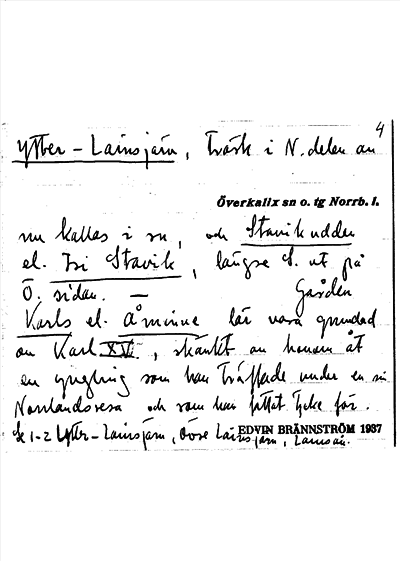 4
Ytter-Lainsjärv, träsk i N. delen av
Överkalix sn o. tg Norrb. l.
nu kallas i sn, och Stavikudden
el. Isi Stavik, längse S. ut på
Ö. sidan. Gården
Karls el. Åminne lär vara grundad
av Karl XV, skänkt av honom åt
en yngling som han träffade under en sin
Norrlandsresa och som han fattat tycke för.
1-2 Ytter-Lainsjärv, Övse Lainsjärv, Lainsån.
EDVIN BRÄNNSTRÖM 1937